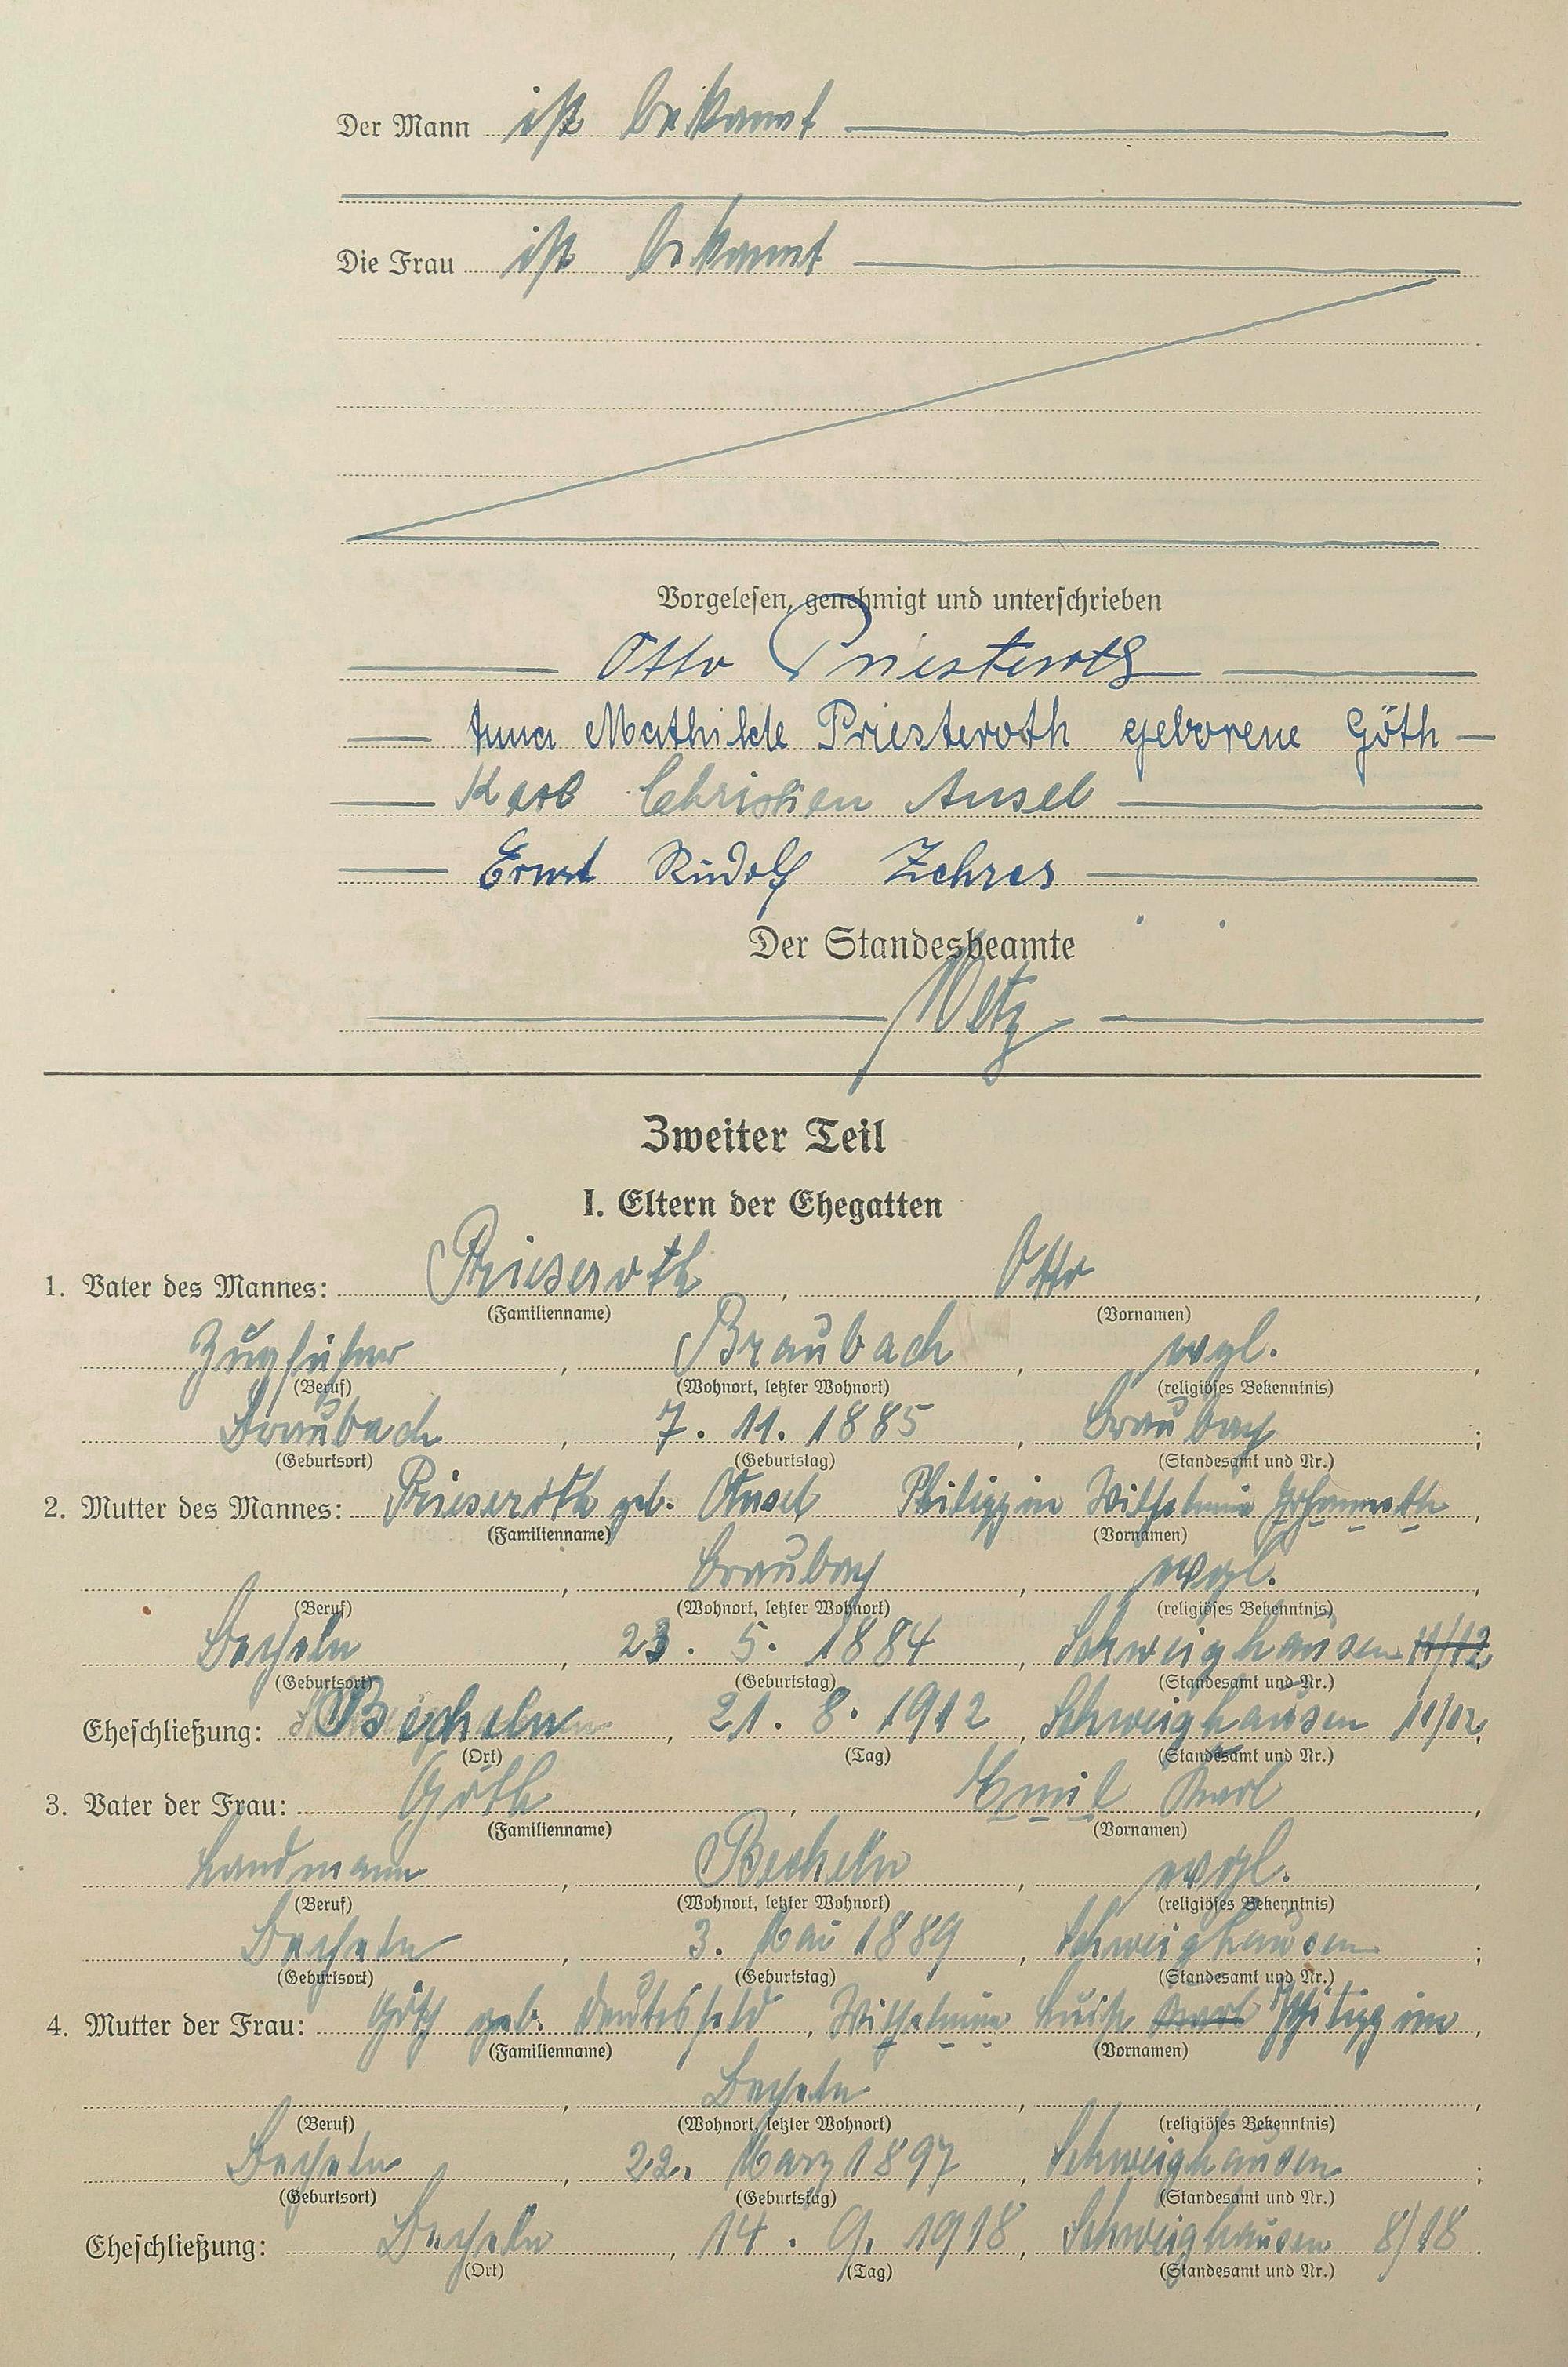 Der Mann ist bekannt
Die Frau ist bekannt
Vorgelesen, genehmigt und unterschrieben
Otto Priesteroth
Anna Mathilde Priesteroth geborene Göth
Karl Christian Ansel
Ernst Rudolf Zehres
Der Standesbeamte
Metz
Zweiter Teil
I. Eltern der Ehegatten
1. Vater des Mannes: Prieseroth, Otto,
(Familienname) (Vornamen)
Zugführer, Braubach, evgl.
(Beruf) (Wohnort, letzter Wohnort) (religiöses Bekenntnis)
Braubach, 7. 11. 1885, Braubach;
(Geburtsort) (Geburtstag) (Standesamt und Nr.)
2. Mutter des Mannes: Prieseroth geb. Ansel Philippin Wilhelmin,
(Familienname) (Vornamen)
, Braubach, evgl.,
(Beruf) (Wohnort, letzter Wohnort) (religiöses Bekenntnis)
Becheln, 23. 5. 1884, Schweighausen 11/12
(Geburtsort) (Geburtstag) (Standesamt und Nr.)
Eheschließung: Becheln, 21. 8. 1912, Schweighausen 11/12;
(Ort) (Tag) (Standesamt und Nr.)
3. Vater der Frau: Göth, Emil Karl,
(Familienname) (Vornamen)
Landmann, Becheln, evgl.,
(Beruf) (Wohnort, letzter Wohnort) (religiöses Bekenntnis)
Becheln, 3. Mai 1889, Schweighausen;
(Geburtsort) (Geburtstag) (Standesamt und Nr.)
4. Mutter der Frau: Göth geb. Deutesfeld, Wilhelmine Luise Karl Philippine,
(Familienname) (Vornamen)
, Becheln, ,
(Beruf) (Wohnort, letzter Wohnort) (religiöses Bekenntnis)
Becheln, 22. März 1897, Schweighausen;
(Geburtsort) (Geburtstag) (Standesamt und Nr.)
Eheschließung: Becheln, 14. 9. 1918, Schweighausen 8/18.
(Ort) (Tag) (Standesamt und Nr.)